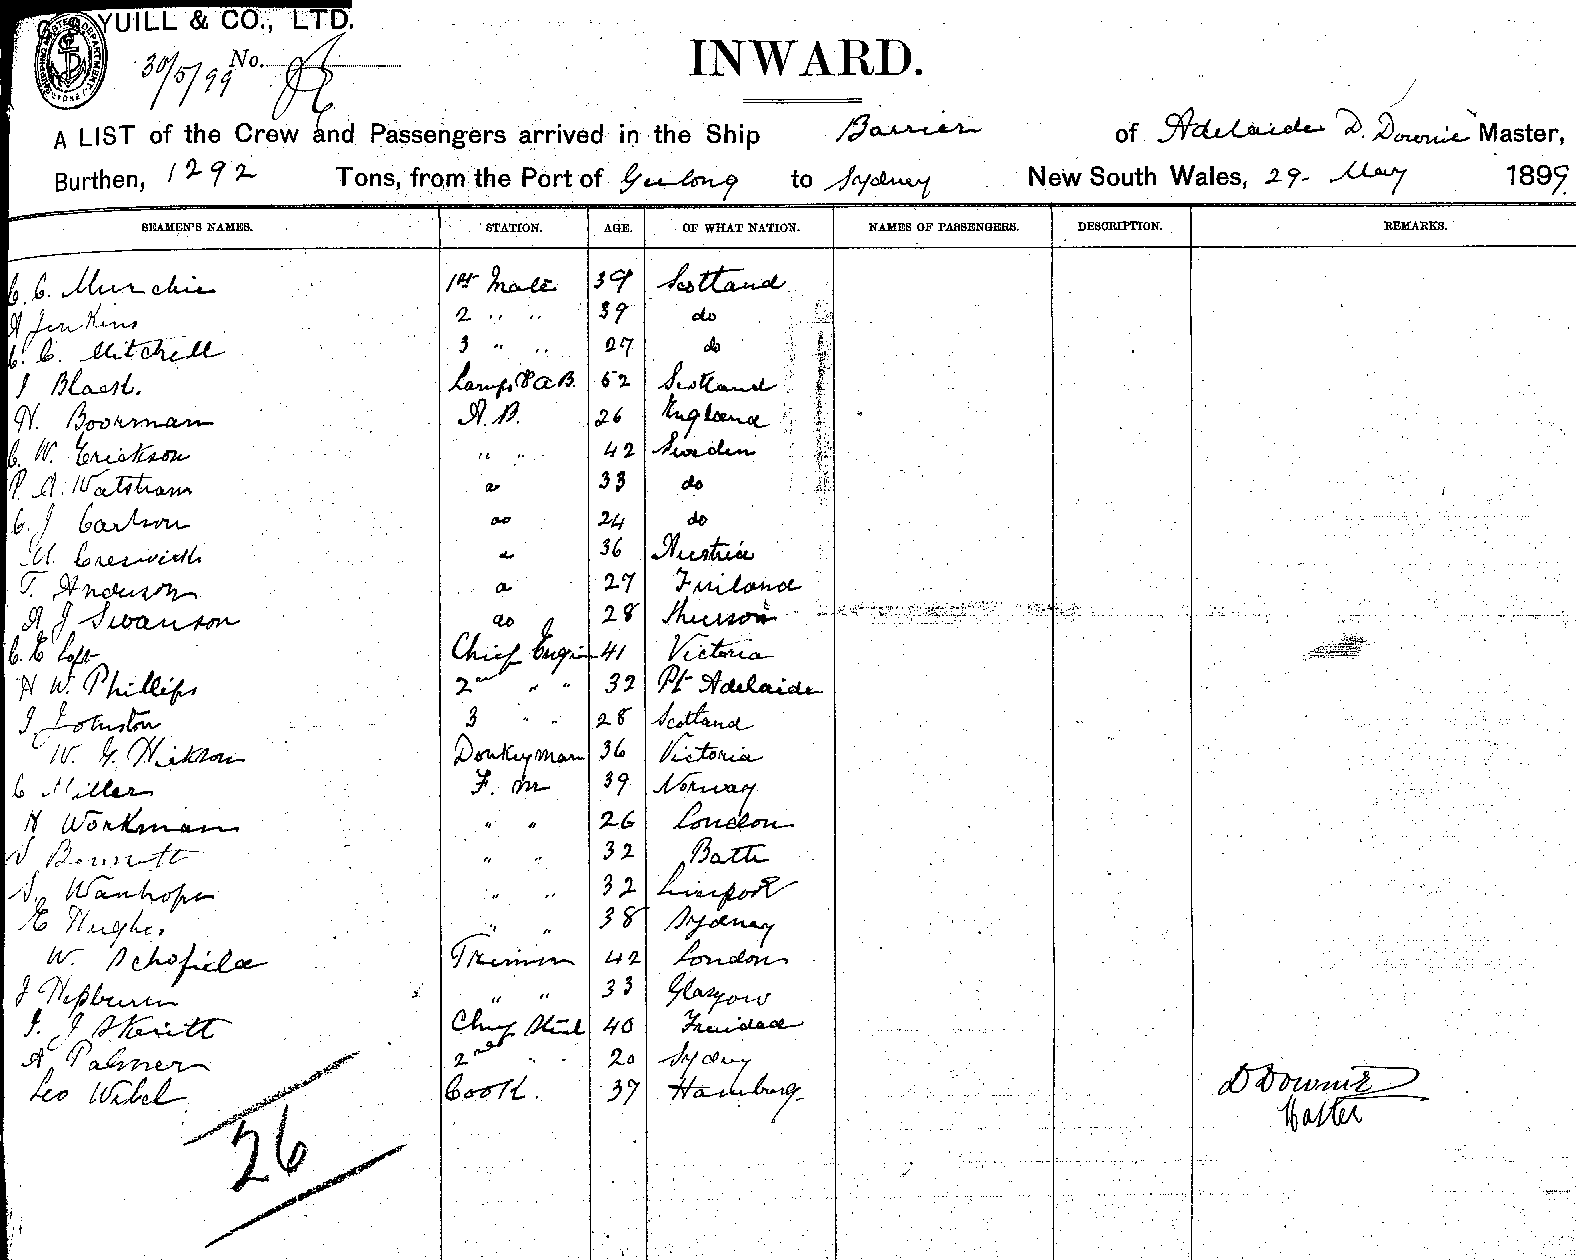 YUILL & CO., LTD.
30/5/99 No.
INWARD.
A LIST of the Crew and Passengers arrived in the Ship Barrier of Adelaide D. Downie Master,
Burthen, 1292 Tons, from the Port of Geelong to Sydney New South Wales, 29 May 1899
SEAMEN'S NAMES. STATION. AGE. OF WHAT NATION. NAMES OF PASSENGERS. DESCRIPTION. REMARKS.
C. C. Murchie 1st Mate 39 Scotland
A Jenkins 2 " " 39 do
C. C. Mitchell 3 " " 27 do
J Black. Lamps & A.B. 52 Scotland
H. Boorman A.B. 26 England
C. W. Erickson " " 42 Sweden
P. A. Watstram 33 do
C. J Carlson do 24 do
36 Austria
T. Anderson 27 Finland
A J Swanson do 28
C. E Loft Chief Engin 41 Victoria
H W. Phillips 2nd " " 32 Pt Adelaide
J Johnston 3 " " 28 Scotland
W. G. Hickson Donkeyman 36 Victoria
C Miller F. M 39 Norway
H Workman " " 26 London
Bennett " " 32 Bath
Wanhope " " 32 Liverpool
E Hughes " " 38 Sydney
W. Schofield Trimmer 42 London
J Hepburn " " 33 Glasgow
J. J Skeritt Chief Stud 40 Trinidad
A Palmer 2nd " " 20 Sydney
Leo Wibel Cook. 37 Hamburg.
D Downie
Master
26